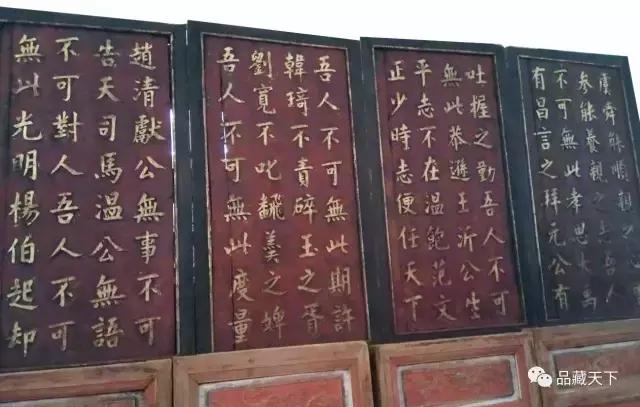 虞舜能順親之
參能養親之志吾人
不可無此孝思大禹
有昌言之拜元公有
吐握之勤吾人不可
無此恭遜王沂公生
平志不在温飽范文
正少時志便任天下
吾人不可無此期許
韓琦不責碎玉之胥
劉寬不叱飜羹之婢
吾人不可無此度量
趙清獻公無事不可
告天司馬温公無語
不可對人吾人不可
無此光明楊伯起却
品藏天下